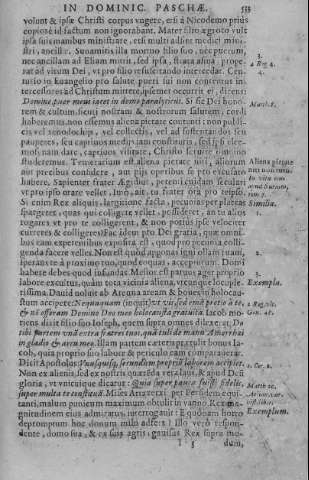 IN DOMINIC. PASCHÆ. 533
volunt & ipsæ Christi corpus vngere, etsi à Nicodemo prius
copiosè id factum non ignorabant. Mater filio ægroto vult
ipsa suis manibus ministrare, etsi multi adsint medici, mini-
stri, ancillæ. Sunamitis illa mortuo filio suo, nec puerum,
nec ancillam ad Eliam mittit, sed ipsa, strata asina, prope-
rat ad virum Dei, vt pro filio resuscitando intercedat. Cen-
turio in Euangelio pro salute pueri sui non contentus in-
tercessores ad Christum mittere, ipsemet occurrit ei, dicens:
Domine puer meus iacet in domo paralyticus. Si sic Dei hono-
rem & cultum, sicuti nostram & nostrorum salutem, cordi
haberemus, non essemus aliena pietate contenti, non publi-
cis vel xenodochijs, vel collectis, vel ad sustentandos seu
pauperes, seu captiuos medijs iam constitutis, sed ipsi elee-
mosynam dare, captiuos visitare, Christo seruire omnino
studeremus. Temerarium est aliena pietate niti, aliorum
nos precibus confidere, an ipsi operibus se pro excusato
habere. Sapienter frater Ægidius, petenti cuidam secularι
vt pro ipso orare vellet, Imò, ait, tu frater ora pro teipso.
Si enim Rex aliquis, largitione facta, pecunias per plateas
spargeret, quas qui colligeret vellet, possideret, an tu alios
rogares vt pro te colligerent, & non potius ipse velociter
curreres & colligeres? Fac idem pro Dei gratia, quæ omni-
bus eam expetentibus exposita est, quod pro pecunia colli-
genda facere velles. Non est quod appones igni ollam tuam,
speran te à proximo tuo, quod coquas, accepturum. Domi
habere debes quod infundas. Messor est paruus ager proprio
labore excultus, quàm tota vicinia aliena, vtcunque locuple-
tissima. Dauid noluit ab Areuna aream & boues in holocau-
stum accipere: Nequaquam (inquit) vt vis, sed emā pretio à te,
& nō offeram Domino Deo meo holocausta gratuita. Iacob mo-
riens dicit filio suo Ioseph, quem supra omnes dilexerat: Do
tibi partem vnā extra fratres tuos, quā tuli de manu Amorrhæi
in gladio & arcu meo. Illam partem cæteris prætulit bonus Ia-
cob, quia proprio suo labore & periculo eam comparauerat.
Dicit Apostolus: Vnusquisq; secundum propriū laborem accipiet.
Non ex alienis, sed ex nostris quærēda vera laus, & apud Deū
gloria, vt vnicuique dicatur: Quia super pauca fuisti fidelis,
super multa te constituā. Mises Artaxerxi per Persidem equi-
tanti, malum punicum maximum obtulit in vanno. Rex ma-
gnitudinem eius admiratus, interrogauit: E quonam horto
deptomptum hoc donum mihi adfers? Illo verò respon-
dente, domo sua, & ex suis agris, gauisus Rex supra mo-
T t 5 dum,
3.
2 Reg 4.
4.
Matth. 8.
Aliena pietate
Similia.
1.
2.
3.
Exempla.
2. Reg. vlt.
Gen. 48.
1. Cor. 3.
Matth. 25.
Exemplum.